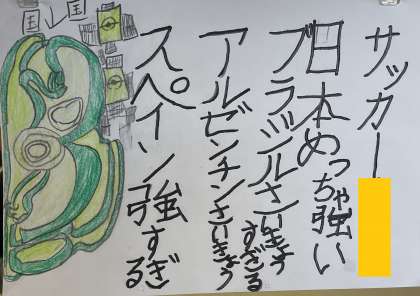 サッカー
日本めっちゃ強い
ブラジルさいきょうすぎる
アルゼンチンさいきょう
スペイン強すぎる
国レ国